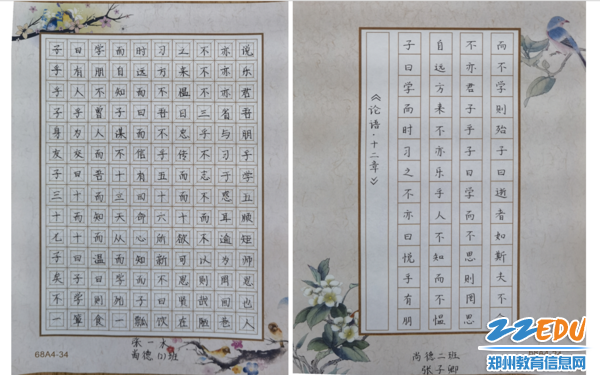 子曰学而时习之不亦说
乎有朋自远方来不亦乐
乎人不知而不愠不亦君
子乎曾子曰吾日三省吾
身为人谋而不忠乎与朋
友交而不信乎传不习乎
子曰吾十有五而志于学
三十而立四十而不惑五
十而知天命六十而耳顺
七十而从心所欲不逾矩
子曰温而知新可以为师
矣子曰学而不思则罔思
不学则殆子曰贤哉回也
一箪食一瓢饮在陋巷人
尚德(1)班
68A4-34
《论语·十二章》
子曰学而时习之不亦曰悦乎有朋
自远方来不亦乐乎人不知而不愠
不亦君子乎子曰学而不思则罔思
而不学则殆子曰逝者如斯夫不舍
尚德二班
张子卿
ZZEDU
郑州教育信息网